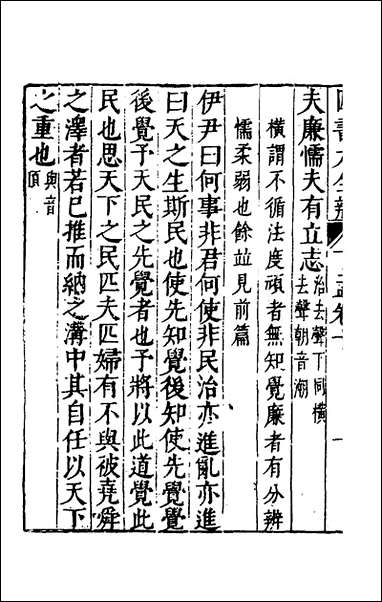 四書大全辨
孟卷十
夫廉懦夫有立志治去聲下同橫去聲朝音潮
橫謂不循法度頑者無知覺廉者有分辨
懦柔弱也餘竝見前篇
伊尹曰何事非君何使非民治亦進亂亦進
曰天之生斯民也使先知覺後知使先覺覺
後覺予天民之先覺者也予將以此道覺此
民也思天下之民匹夫匹婦有不與被堯舜
之澤者若己推而納之溝中其自任以天下
之重也與音預